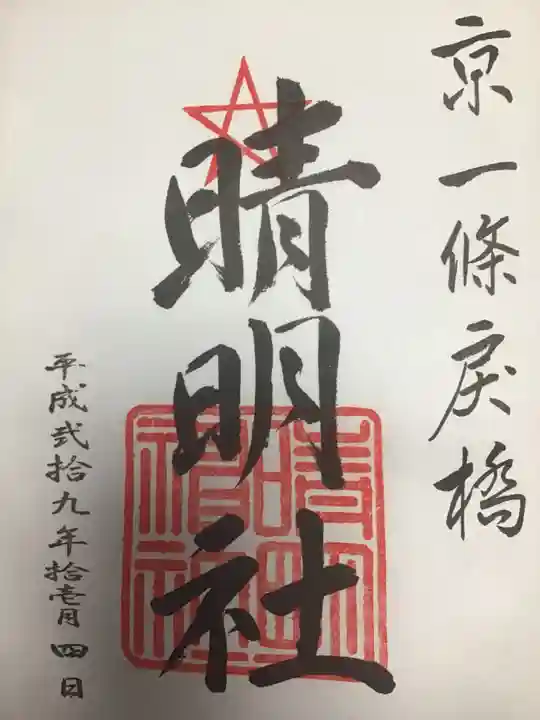 京一條戻橋
晴明社
晴明
神社
平成弐拾九年拾壱月四日